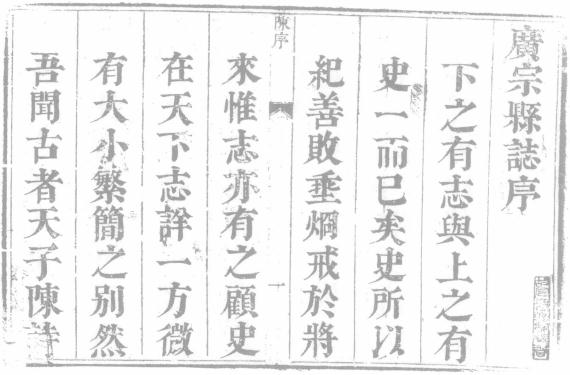 廣宗縣誌序
下之有志與上之有
史一而已矣史所以
紀善敗垂烱戒於將
陳序
一
來惟志亦有之顧史
在天下志詳一方微
有大小繁簡之别然
吾聞古者天子陳詩